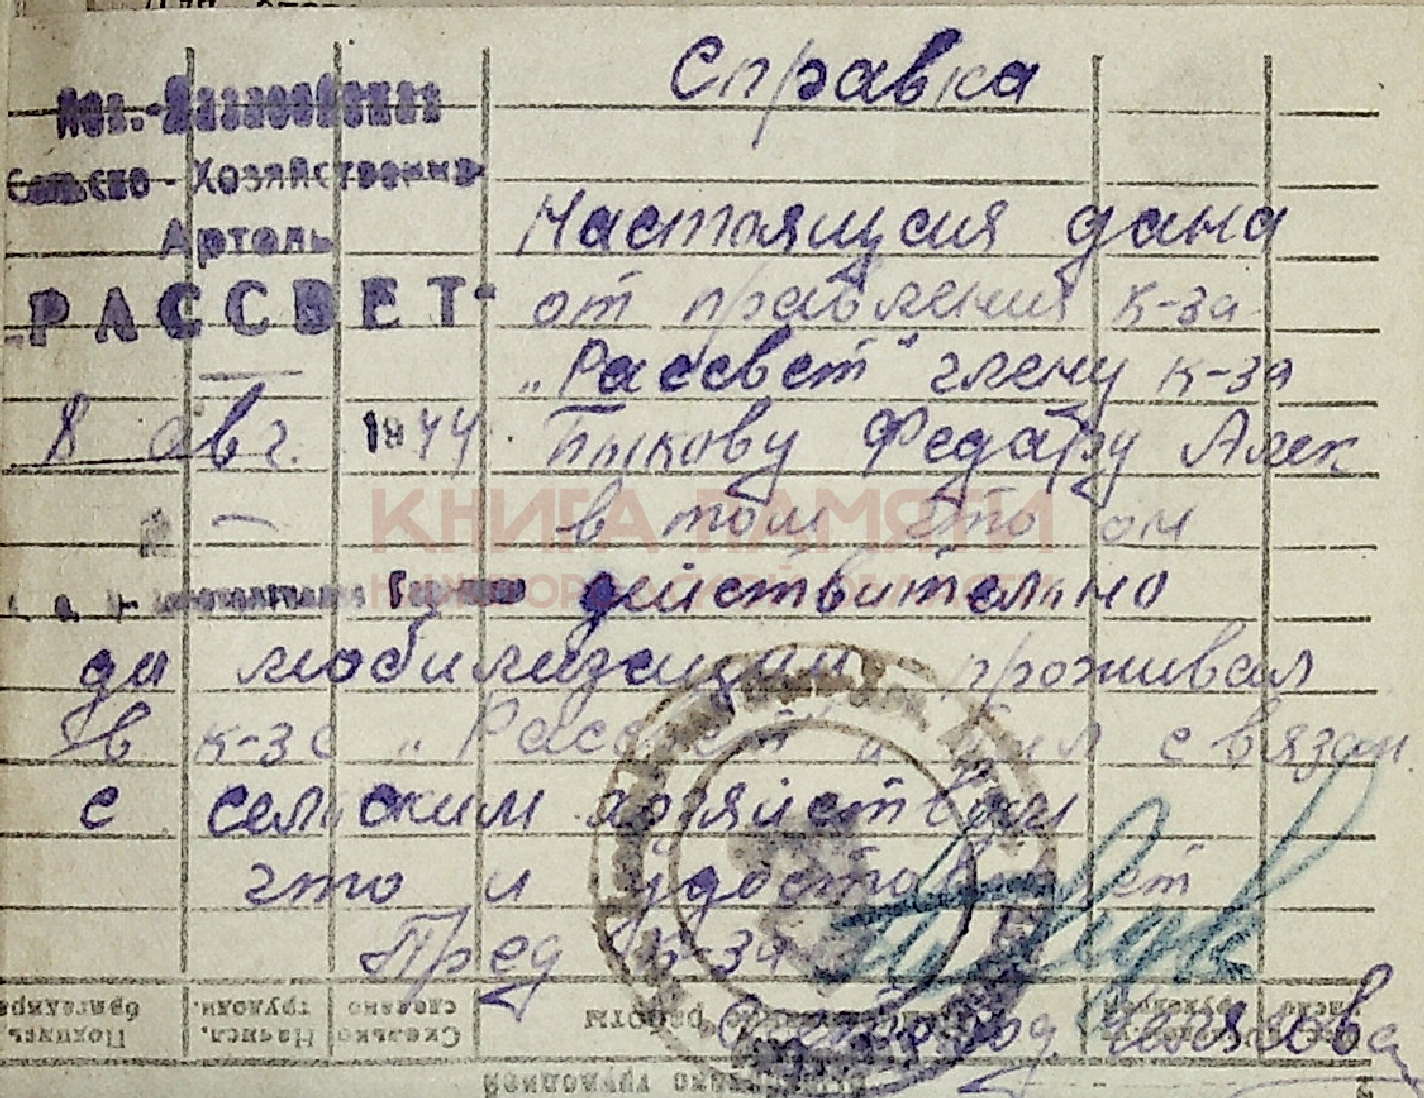 Справка
Сельско-Хозяйственная
Артель
„РАССВЕТ“
8 авг. 1944
Настоящая дана
от правления к-за
„Рассвет“ члену к-за
Быкову Федару Алек
в том что он
действительно
до мобилизации проживал
в к-зе „Рассвет“ и был связан
с сельским хозяйством
что и удостоверяет
Пред к-за
Счетовод
КНИГА ПАМЯТИ
НИЖЕГОРОДСКОЙ ОБЛАСТИ
Подпись
бригадира
Начисл.
трудодн.
Сколько
сделано
работы